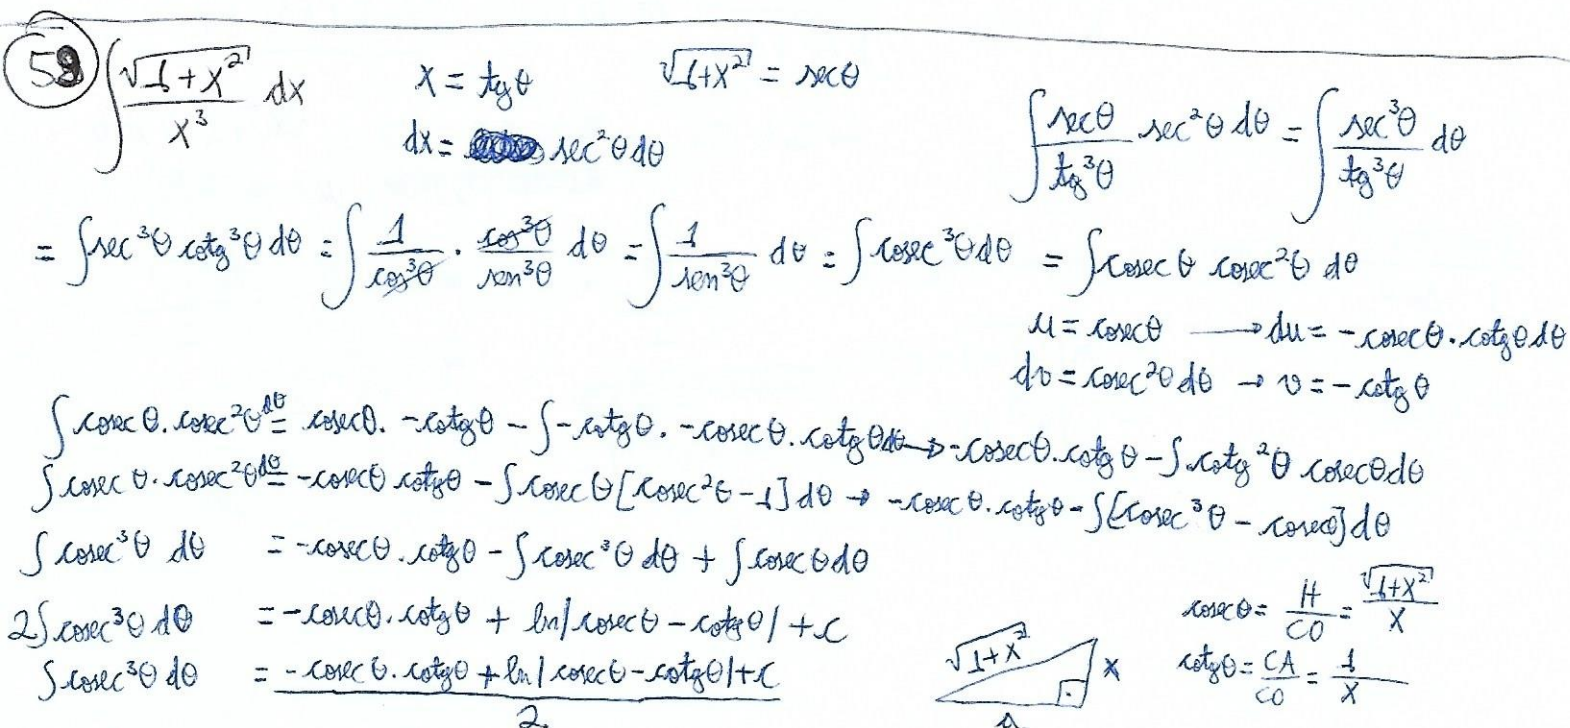 58 ∫ √(1+x²)/x³ dx    x = tgθ    √(1+x²) = secθ
dx = sec²θdθ    ∫ secθ/tg³θ sec²θ dθ = ∫ sec³θ/tg³θ dθ
= ∫sec³θ cotg³θ dθ = ∫ 1/cos³θ · cos³θ/sen³θ dθ = ∫ 1/sen³θ dθ = ∫cosec³θdθ = ∫cosecθ cosec²θ dθ
u = cosecθ → du = -cosecθ.cotgθdθ
dv = cosec²θ dθ → v = -cotgθ
∫cosecθ.cosec²θdθ = cosecθ. -cotgθ - ∫-cotgθ. -cosecθ.cotgθdθ → -cosecθ.cotgθ - ∫cotg²θ cosecθdθ
∫cosecθ.cosec²θdθ = -cosecθ cotgθ - ∫cosecθ[cosec²θ-1]dθ → -cosecθ.cotgθ - ∫[cosec³θ - cosecθ]dθ
∫cosec³θ dθ = -cosecθ.cotgθ - ∫cosec³θ dθ + ∫cosecθdθ
2∫cosec³θ dθ = -cosecθ.cotgθ + ln|cosecθ - cotgθ| + c    cosecθ = H/CO = √(1+x²)/x
∫cosec³θ dθ = (-cosecθ.cotgθ + ln|cosecθ - cotgθ| + c)/2    √(1+x²)    x    cotgθ = CA/CO = 1/x
1